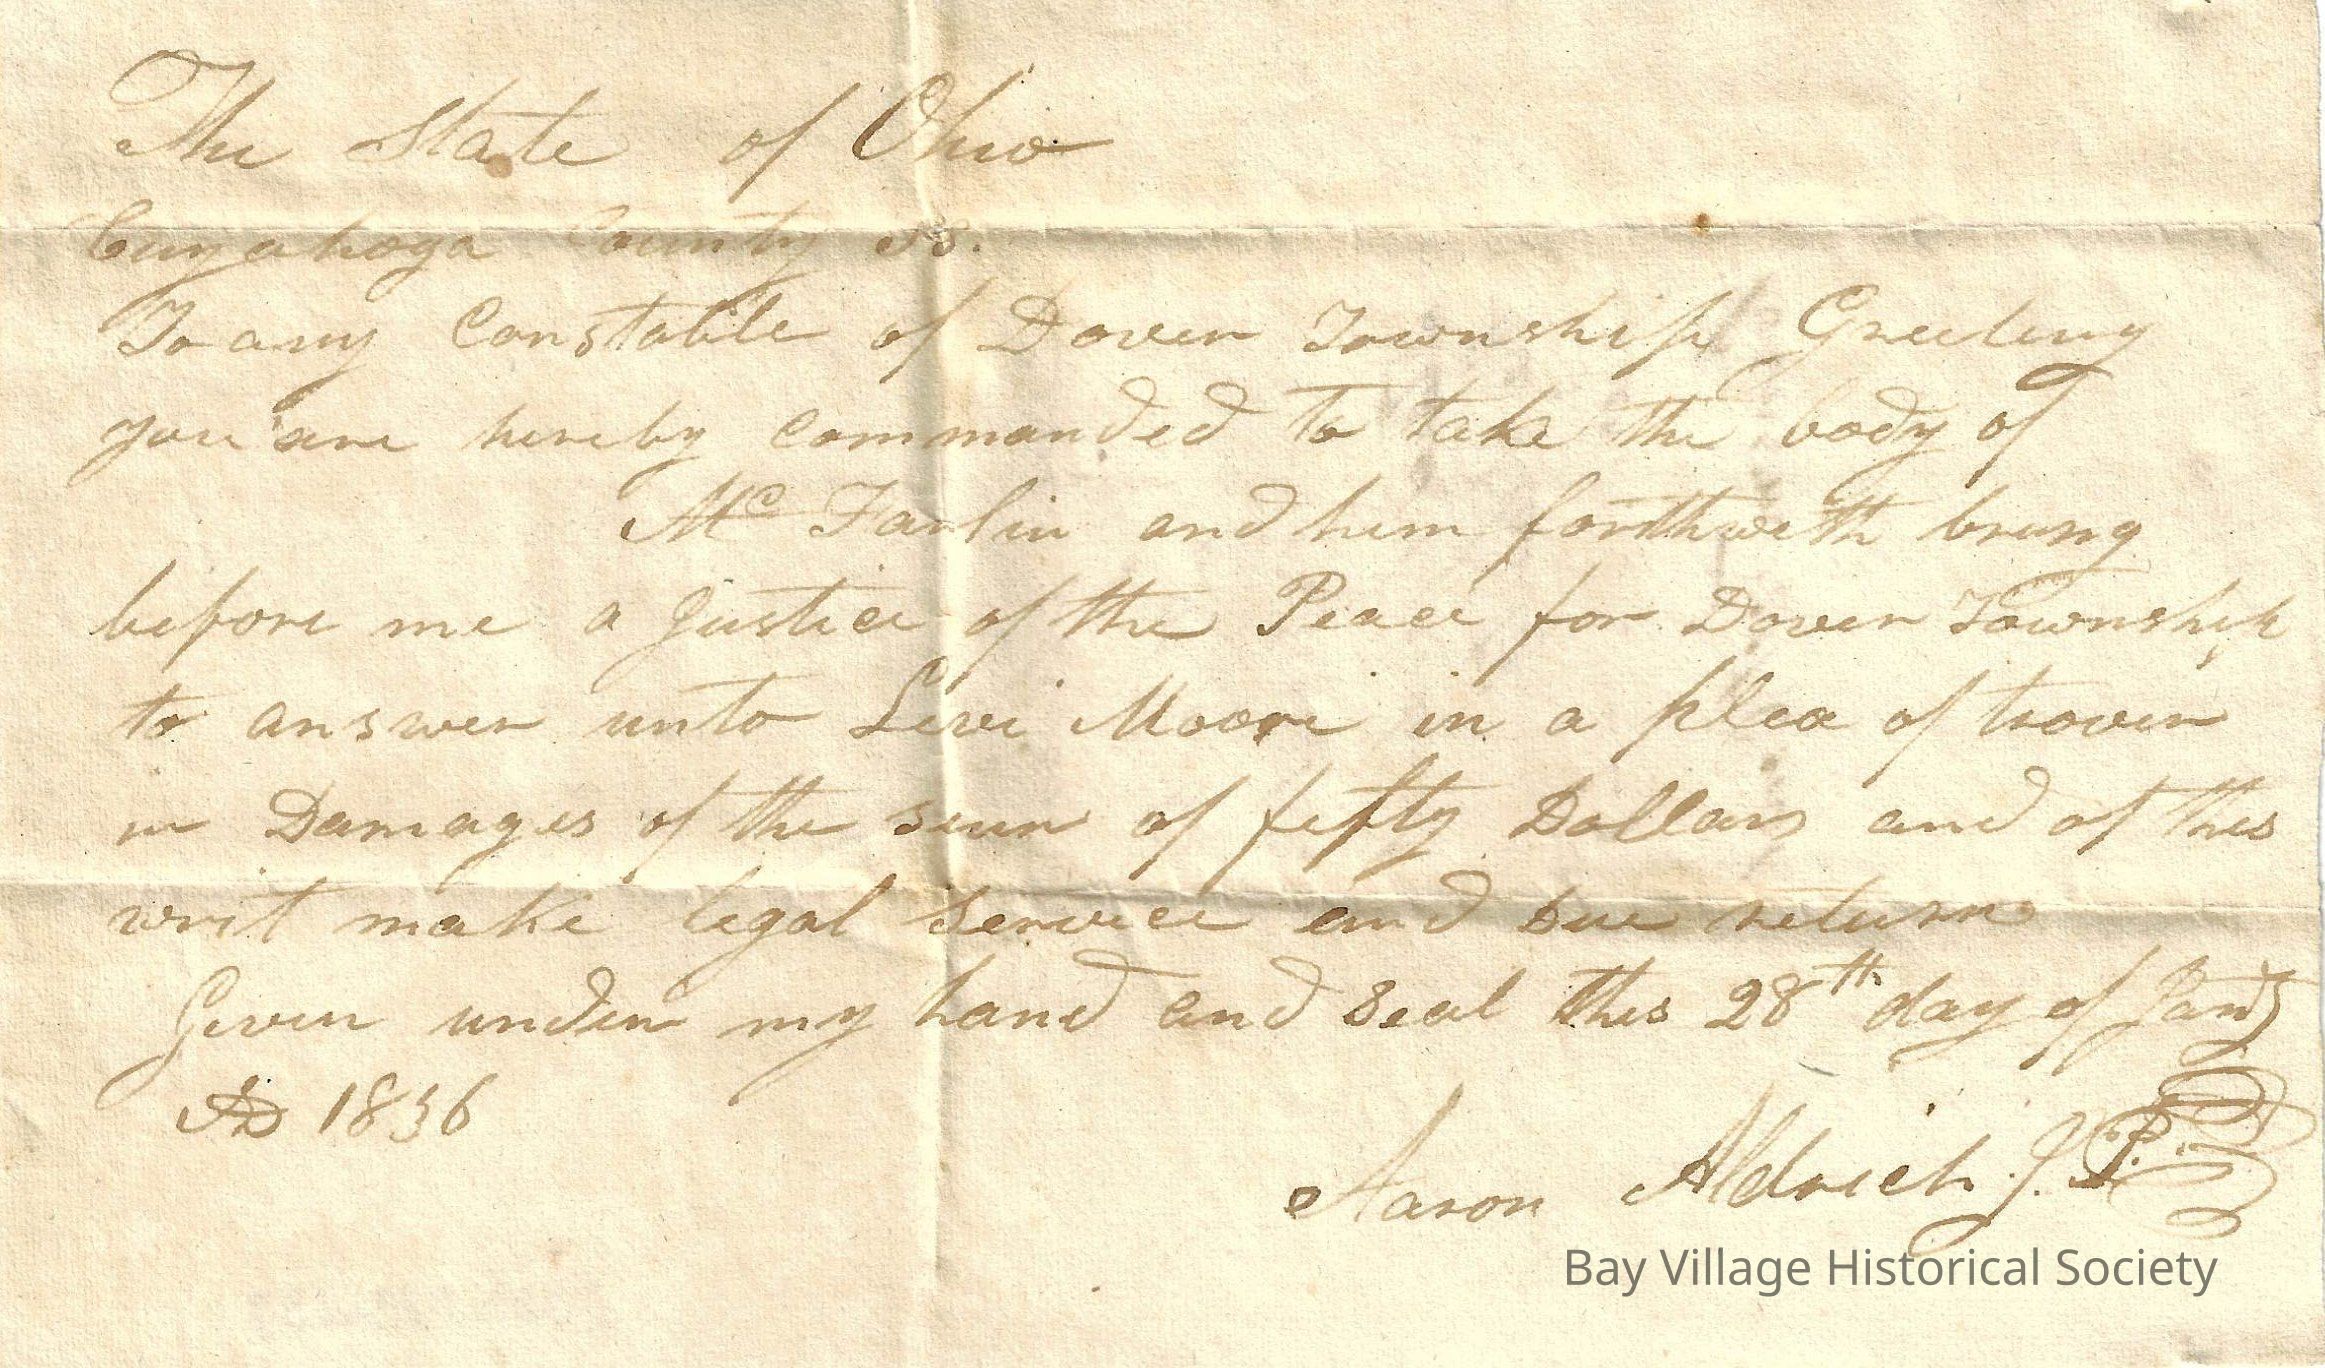 The State of Ohio
Cuyahoga County ss.
To any Constable of Dover Township Greeting
you are hereby commanded to take the body of
Mc Farlin and him forthwith bring
before me a Justice of the Peace for Dover Township
to answer unto Levi Moore in a plea of trover
in Damages of the sum of fifty Dollars and of this
writ make legal service and due return
Given under my hand and seal this 28th day of Jany
AD 1836
Aaron Aldrich J. P.
Bay Village Historical Society